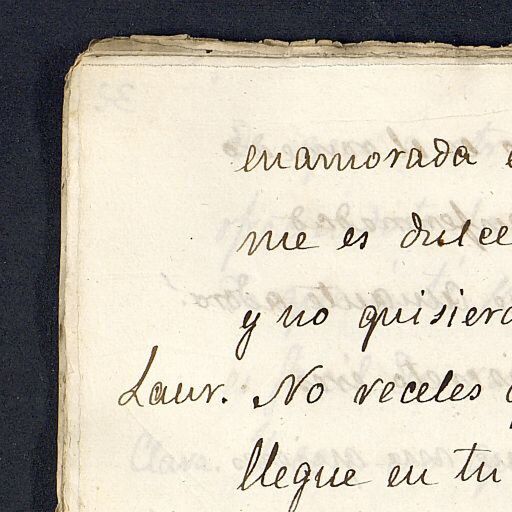 enamorada
me es dulce
y no quisiera
Laur. No receles
llegue en tu